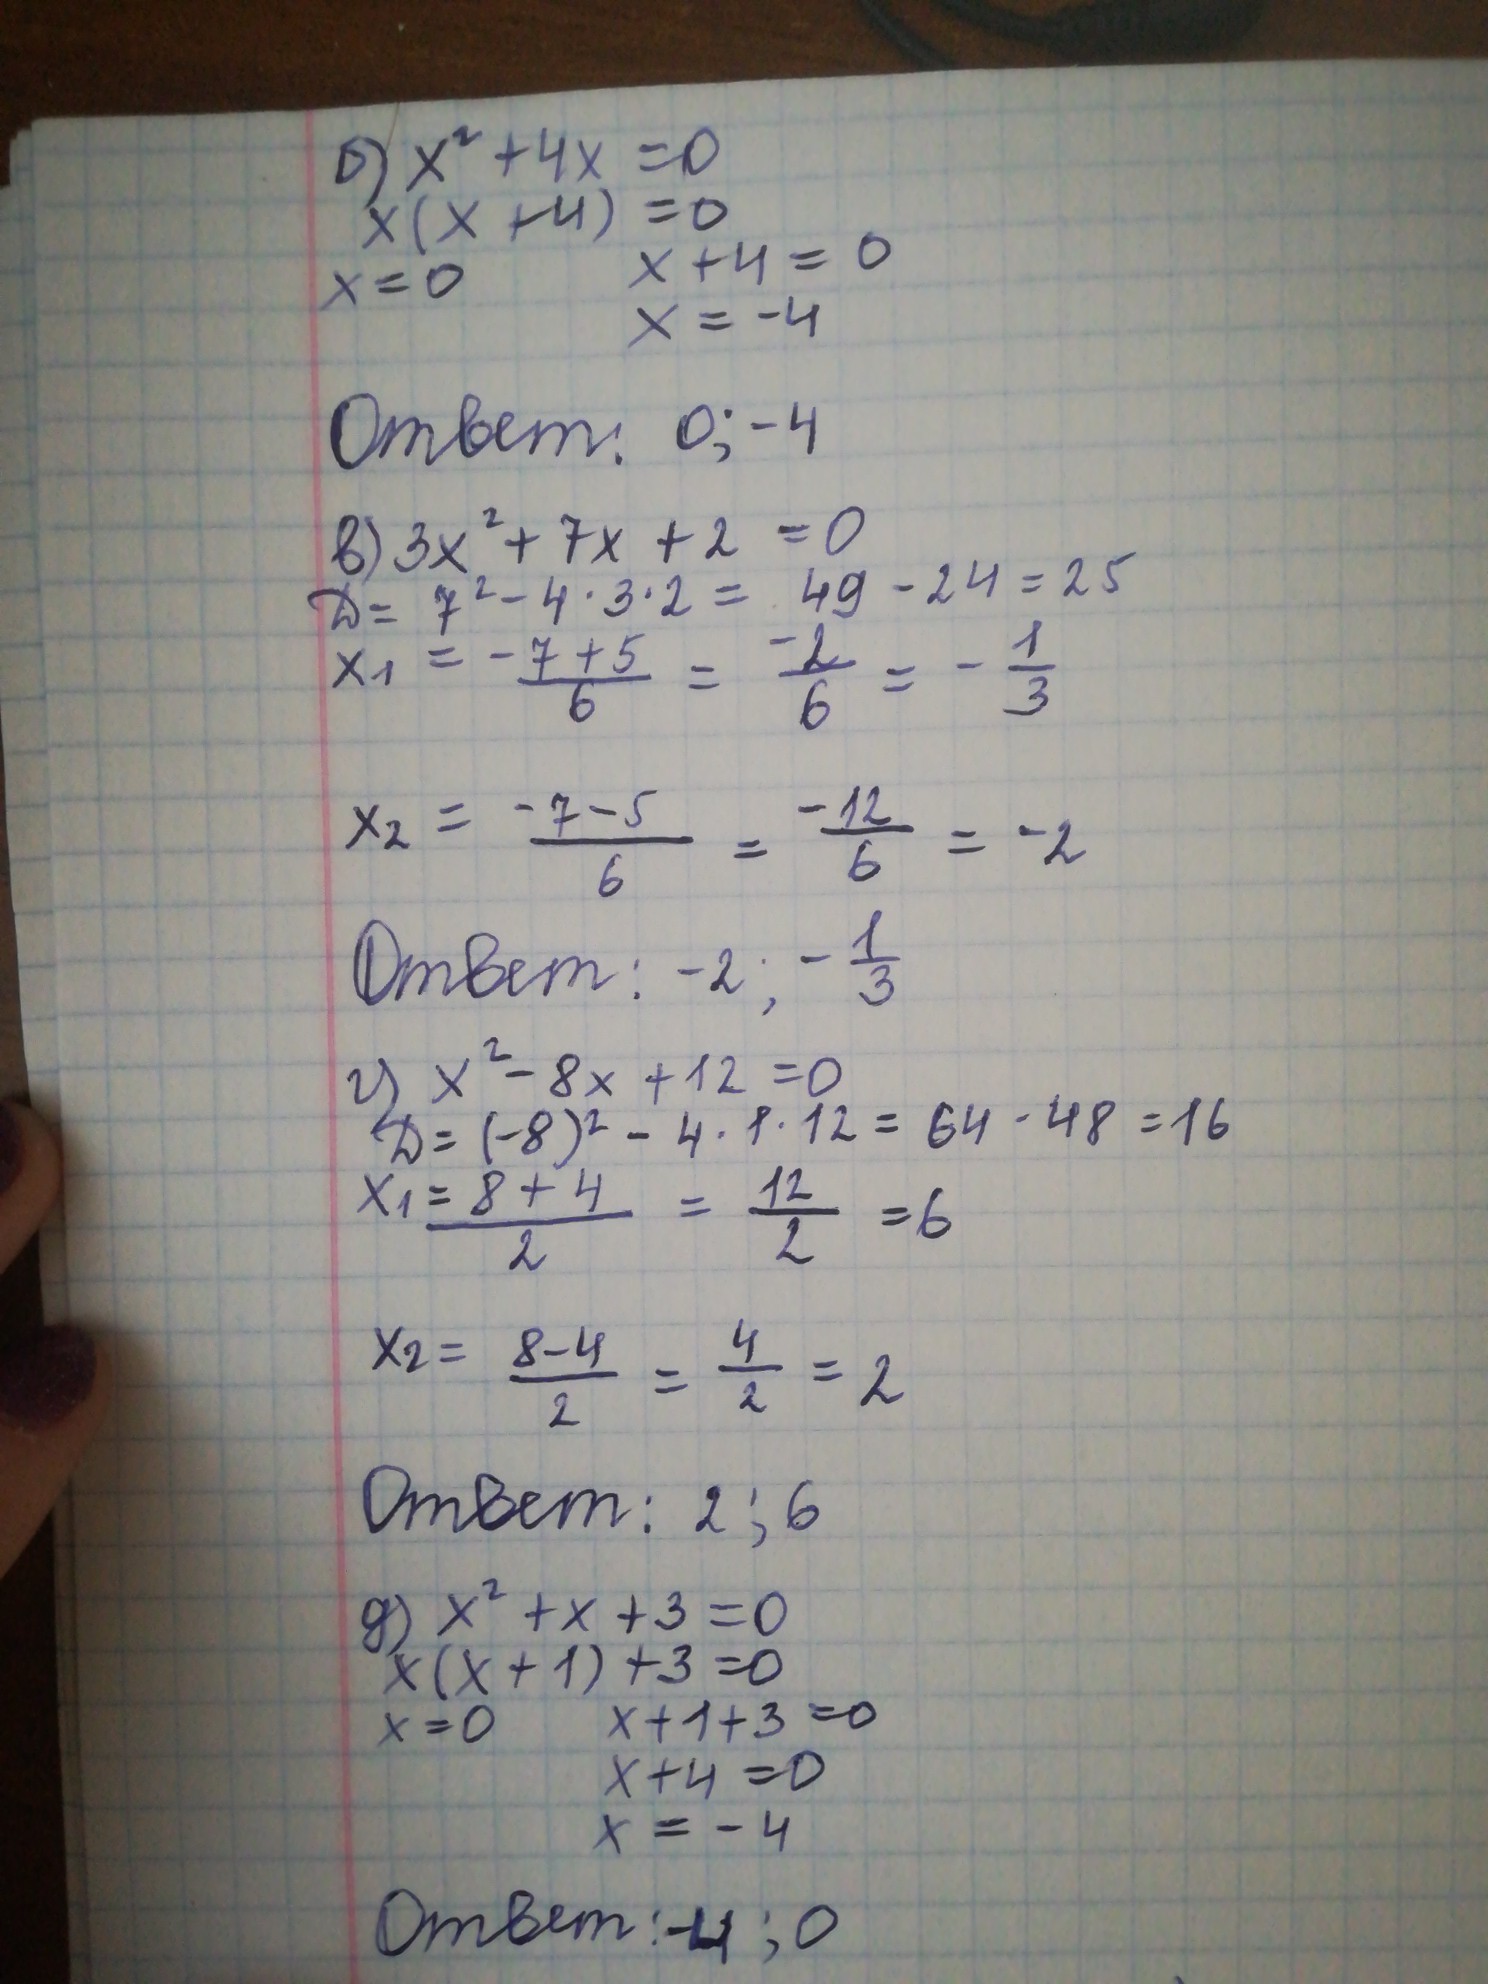 б) x² + 4x = 0
x(x + 4) = 0
x = 0 x + 4 = 0
x = -4
Ответ: 0; -4
в) 3x² + 7x + 2 = 0
D = 7² - 4·3·2 = 49 - 24 = 25
x1 = -7+5/6 = -2/6 = -1/3
x2 = -7-5/6 = -12/6 = -2
Ответ: -2; -1/3
г) x² - 8x + 12 = 0
D = (-8)² - 4·1·12 = 64 - 48 = 16
x1 = 8+4/2 = 12/2 = 6
x2 = 8-4/2 = 4/2 = 2
Ответ: 2; 6
д) x² + x + 3 = 0
x(x + 1) + 3 = 0
x = 0 x + 1 + 3 = 0
x + 4 = 0
x = -4
Ответ: -4; 0